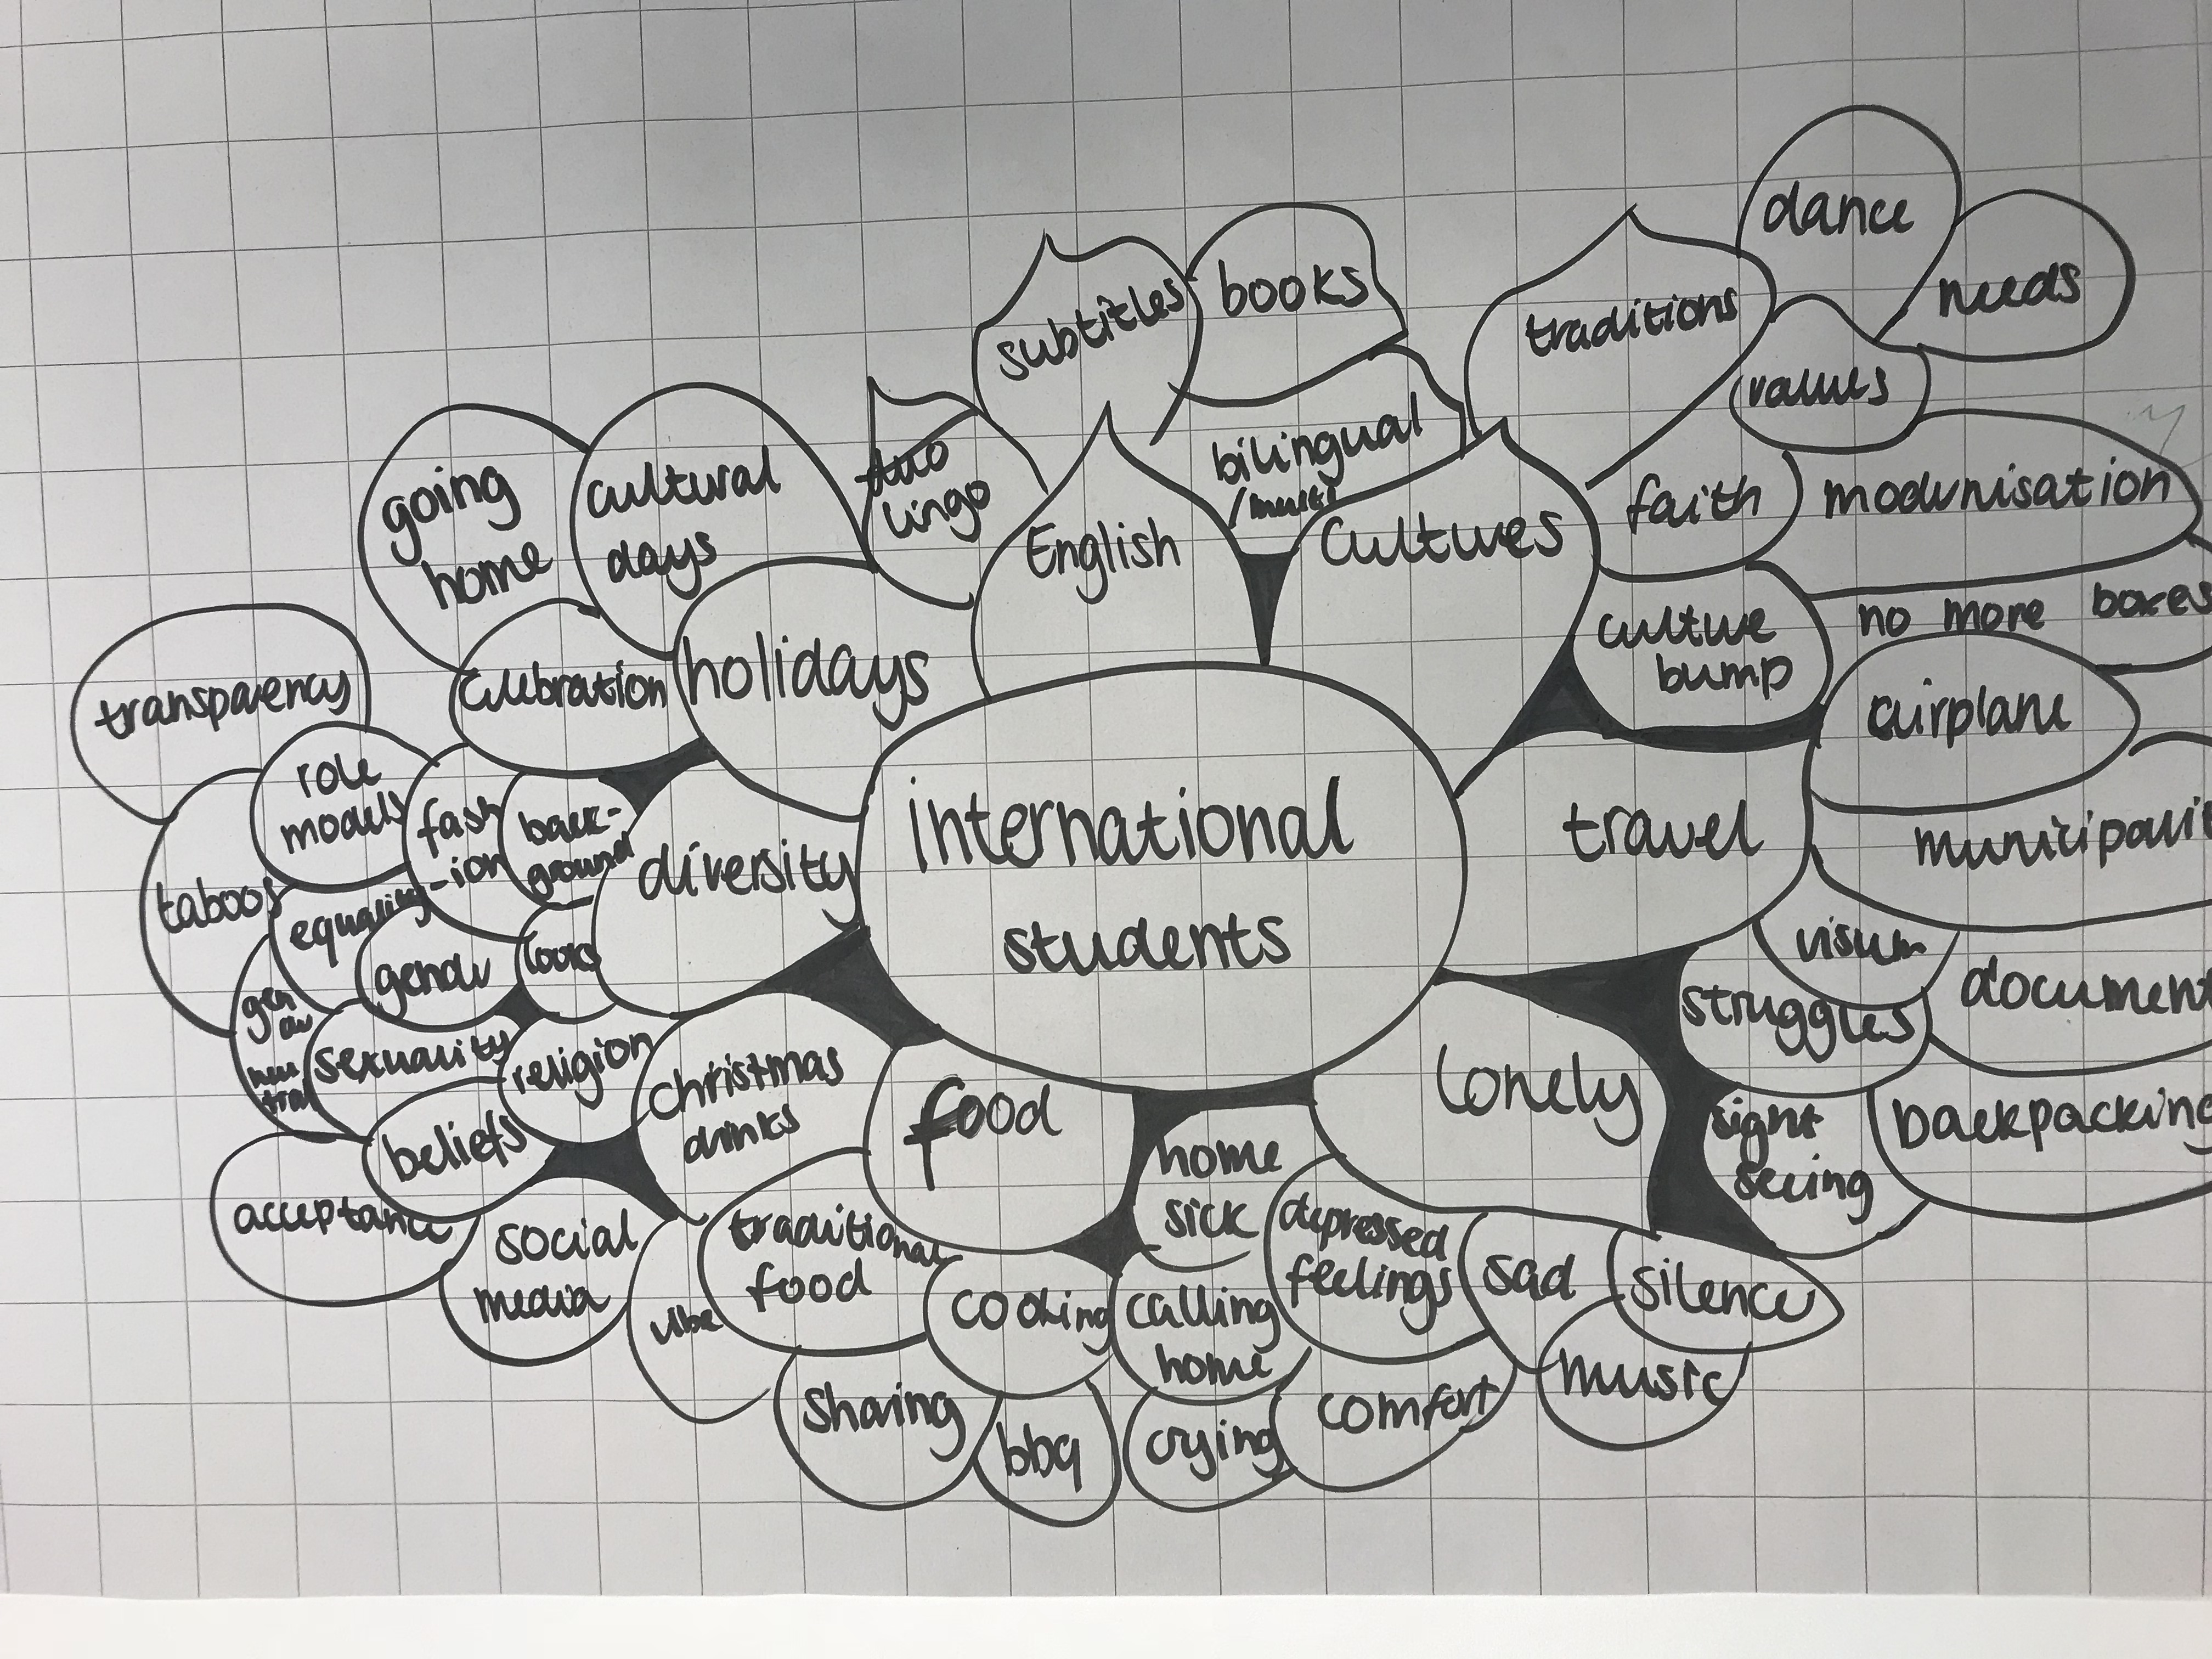 dance
needs
books
subtitles
traditions
values
bilingual
/multi
duo
lingo
cultural
days
going
home
faith
modernisation
English
cultures
no more boxes
culture
bump
holidays
celebration
transparency
airplane
role
models
fash
-ion
back-
ground
diversity
international
students
travel
municipalit
taboos
equality
gender
looks
visum
struggles
document
gen
der
neu
tral
sexuality
religion
christmas
drinks
food
lonely
home
sick
sight
seeing
backpacking
beliefs
acceptance
social
media
vibe
traditional
food
cooking
calling
home
depressed
feelings
sad
silence
music
sharing
bbq
crying
comfort